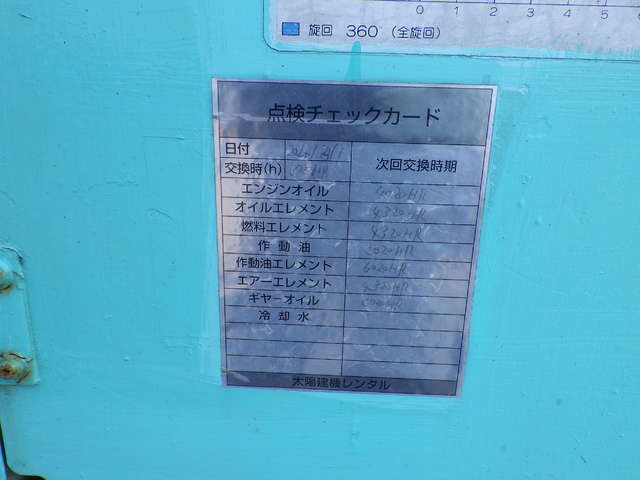 0 1 2 3 4 5
旋回 360 (全旋回)
点検チェックカード
日付
交換時(h) 次回交換時期
エンジンオイル
オイルエレメント 4320HR
燃料エレメント 4320HR
作動油
作動油エレメント
エアーエレメント
ギヤーオイル
冷却水
太陽建機レンタル